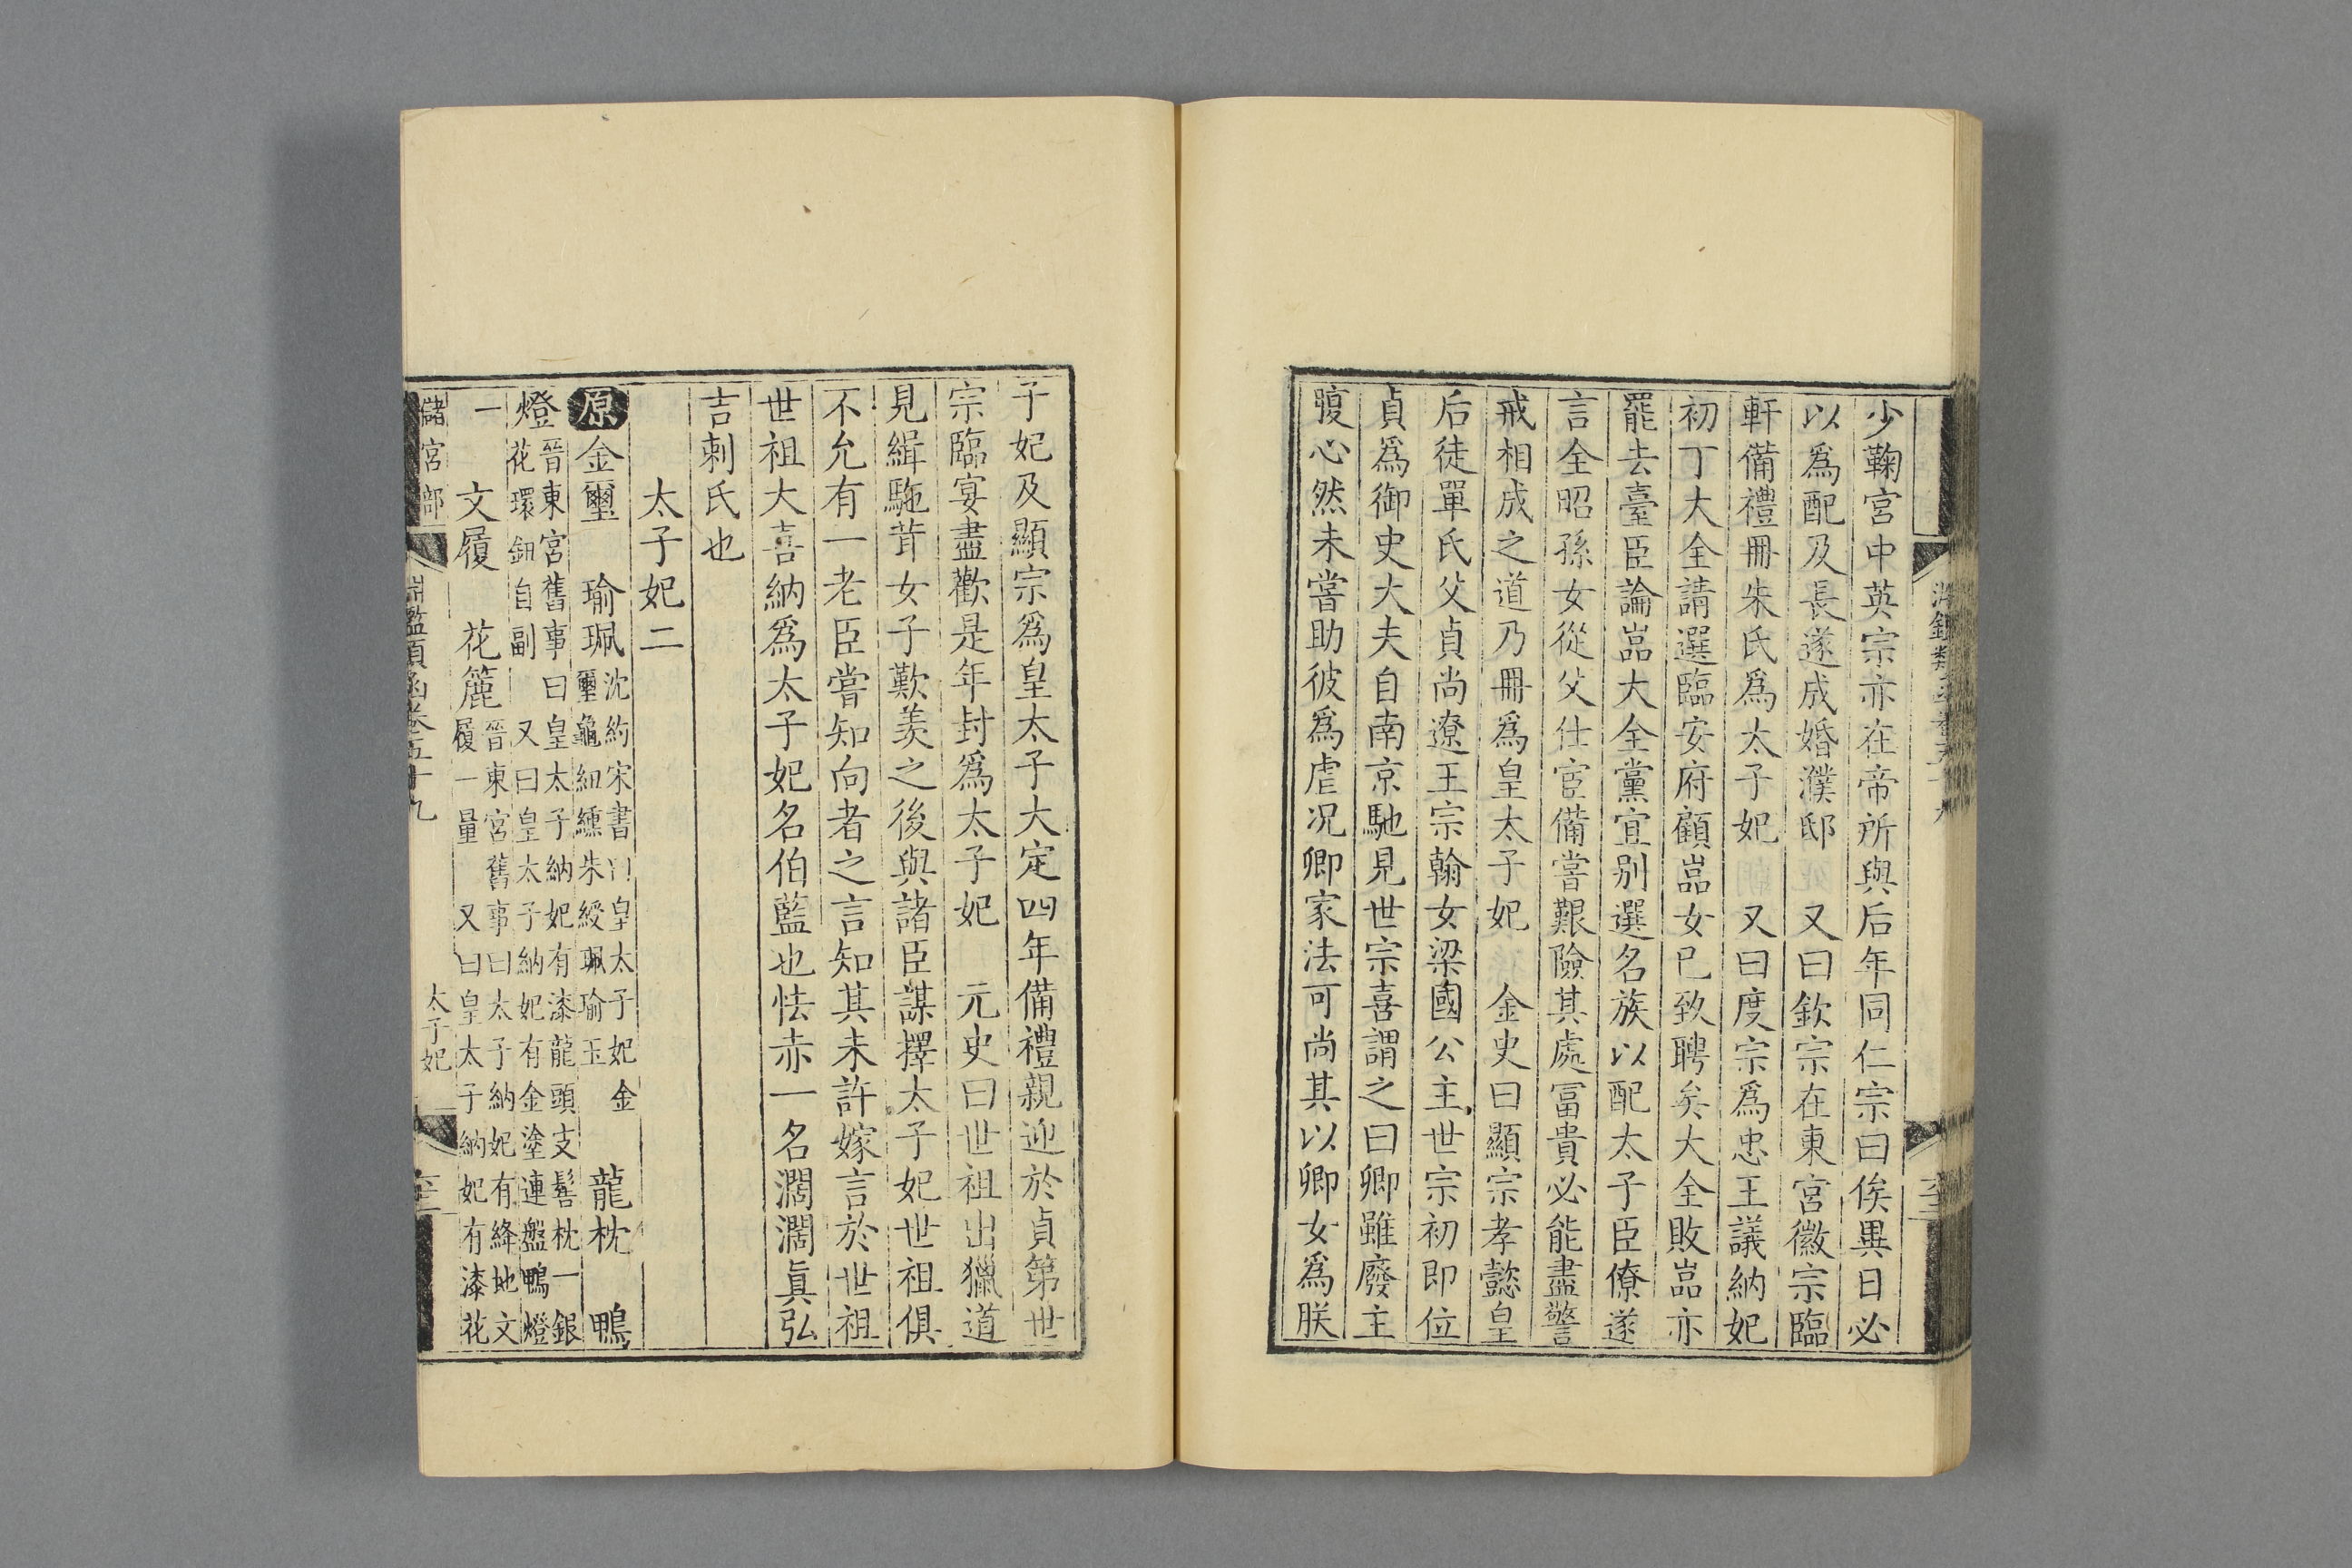 少鞠宮中英宗亦在帝所與后年同仁宗曰俟異日必
以爲配及長遂成婚濮邸　又曰欽宗在東宮徽宗臨
軒備禮冊朱氏爲太子妃　又曰度宗爲忠王議納妃
初丁大全請選臨安府顧嵓女已致聘矣大全敗嵓亦
罷去臺臣論嵓大全黨宜别選名族以配太子臣僚遂
言全昭孫女從父仕宦備嘗艱險其處冨貴必能盡警
戒相成之道乃冊爲皇太子妃　金史曰顯宗孝懿皇
后徒單氏父貞尚遼王宗翰女梁國公主世宗初即位
貞爲御史大夫自南京馳見世宗喜謂之曰卿雖廢主
腹心然未嘗助彼爲虐况卿家法可尚其以卿女爲朕
子妃及顯宗爲皇太子大定四年備禮親迎於貞第世
宗臨宴盡歡是年封爲太子妃　元史曰世祖出獵道
見緝駞茸女子歎羨之後與諸臣謀擇太子妃世祖俱
不允有一老臣嘗知向者之言知其未許嫁言於世祖
世祖大喜納爲太子妃名伯藍也怯赤一名濶濶真弘
吉剌氏也
太子妃二
原金璽　瑜珮沈約宋書曰皇太子妃金璽龜紐纁朱綬珮瑜玉　龍枕　鴨
燈晉東宮舊事曰皇太子納妃有漆龍頭支髻枕一銀花環鈿自副　又曰皇太子納妃有金塗連盤鴨燈
一　文履　花簏晉東宮舊事曰太子納妃有絳地文履一量　又曰皇太子納妃有漆花
儲宮部　淵鑑類函卷五十九　太子妃